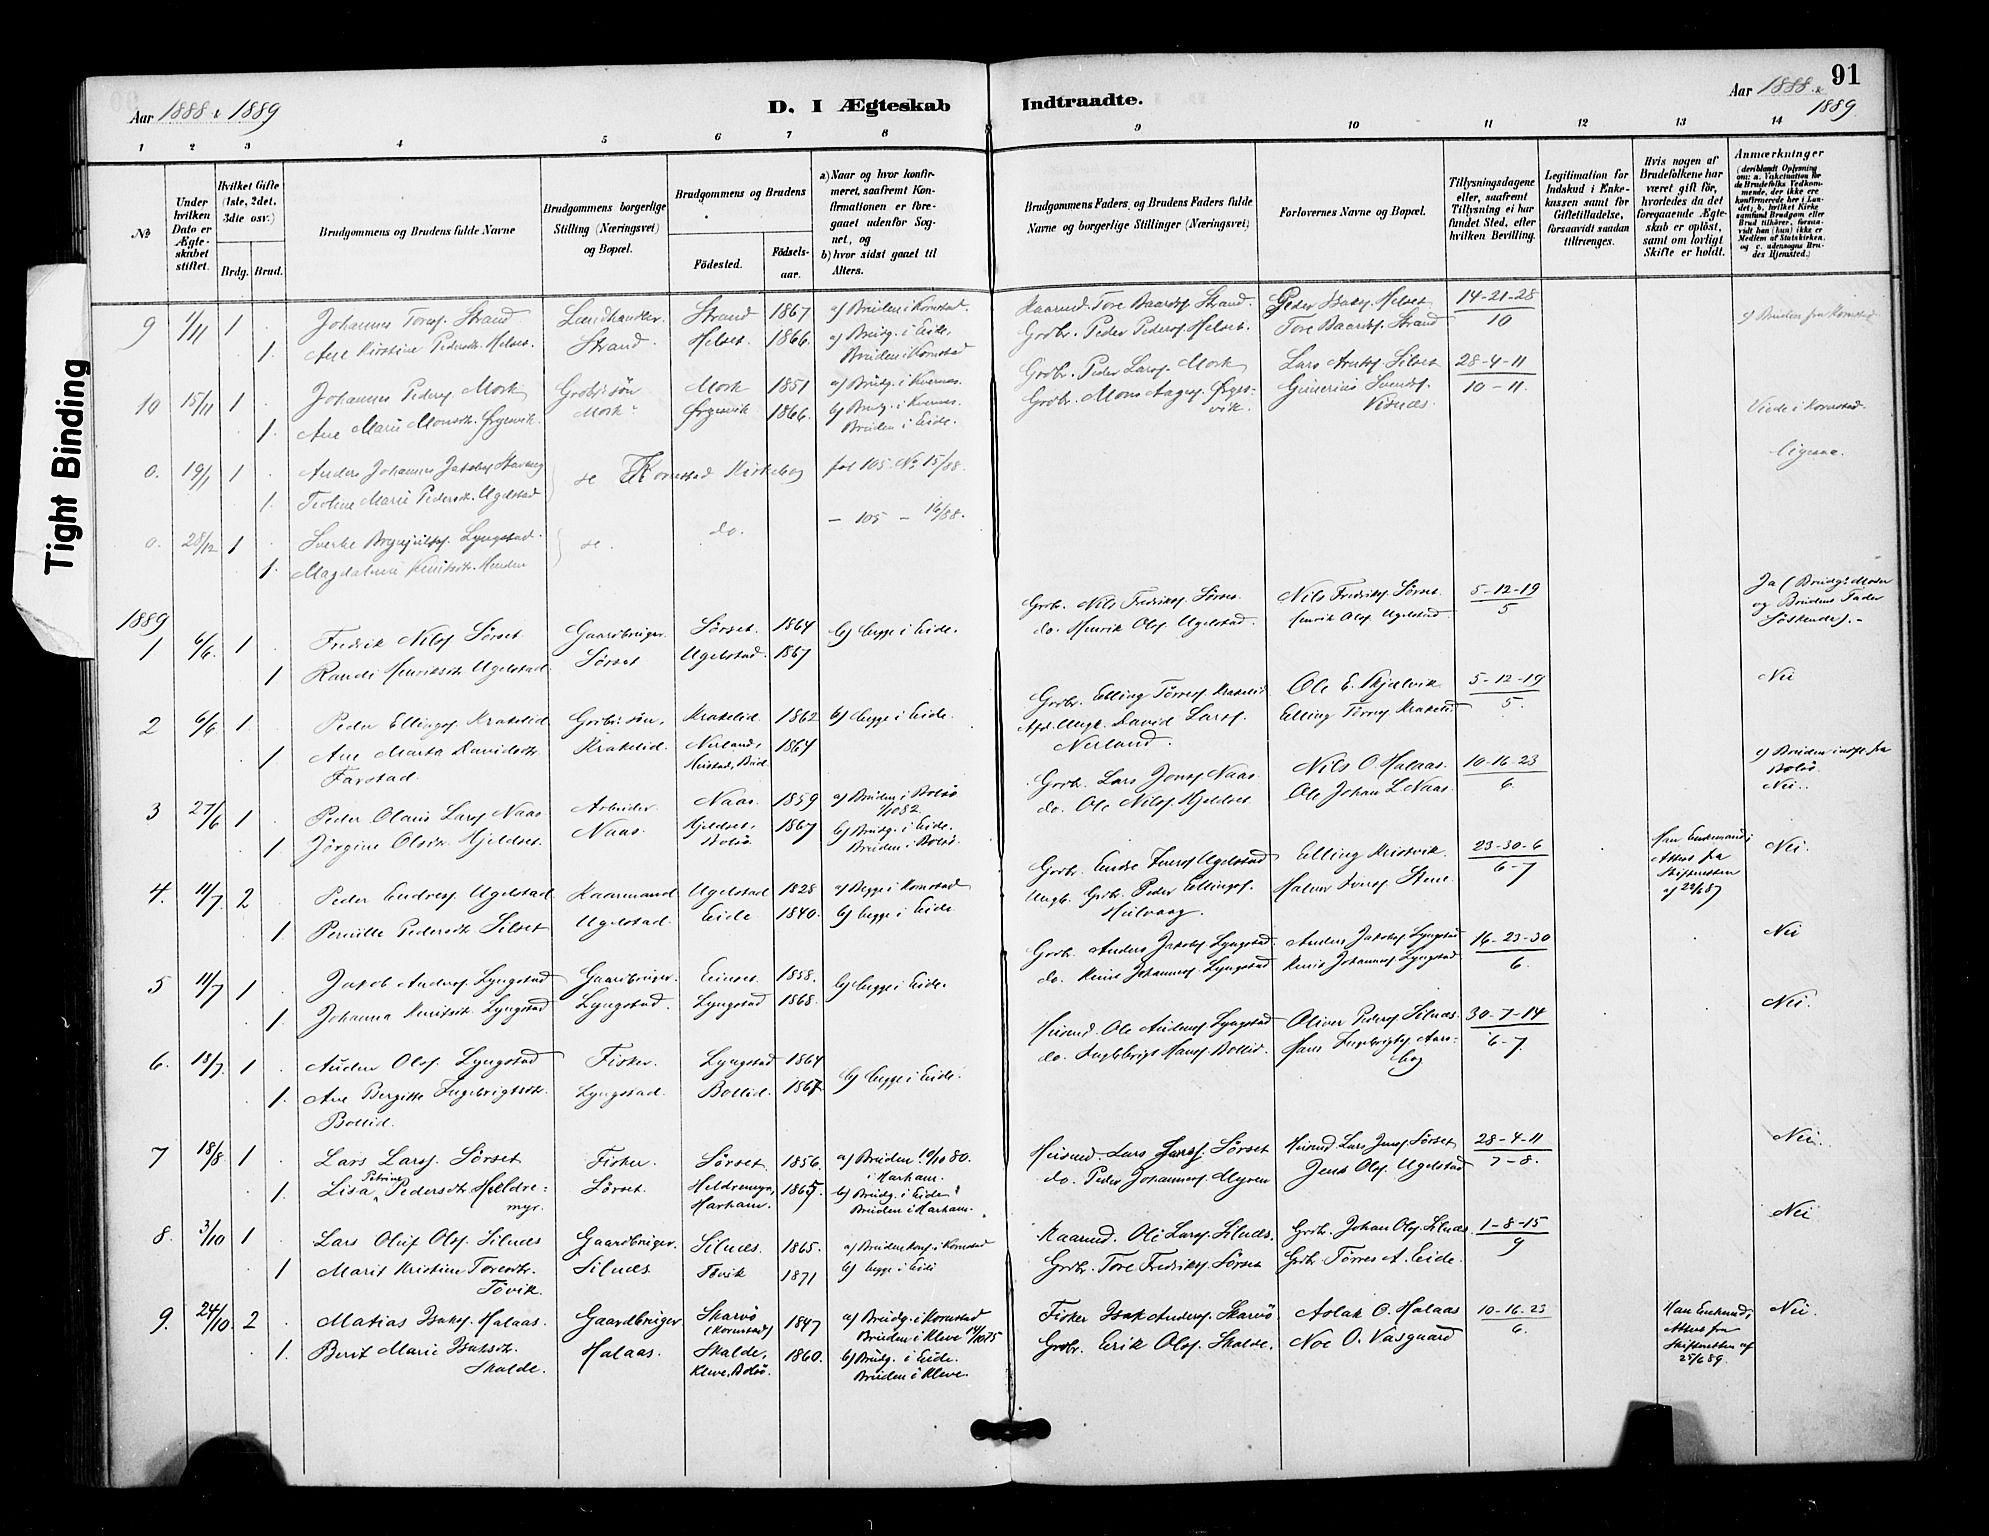 Tight Binding
Aar 1888 & 1889
D. I Ægteskab
Indtraadte.
Aar 1888 & 1889
91
1 2 3 4 5 6 7 8 9 10 11 12 13 14
No
Under hvilken Dato er Ægteskabet stiftet.
Hvilket Gifte (1ste, 2det, 3die osv.)
Brdg. Brud.
Brudgommens og Brudens fulde Navne
Brudgommens borgerlige Stilling (Næringsvei) og Bopæl.
Brudgommens og Brudens
Fødested.
Fødselsaar.
a) Naar og hvor konfirmeret, saafremt Konfirmationen er foregaaet udenfor Sognet, og
b) hvor sidst gaaet til Alters.
Brudgommens Faders og Brudens Faders fulde Navne og borgerlige Stillinger (Næringsvei)
Forlovernes Navne og Bopæl.
Tillysningsdagene eller, saafremt Tillysning ei har fundet Sted, efter hvilken Bevilling.
Legitimation for Indskud i Enkekassen samt for Giftetilladelse, forsaavidt saadan tiltrænges.
Hvis nogen af Brudefolkene har været gift før, hvorledes da det foregaaende Ægteskab er opløst, samt om lovligt Skifte er holdt.
Anmærkninger
(deriblandt Oplysning om: a. Vakcination for de Brudefolks Vedkommende, der ikke ere konfirmerede her i Landet; b. hvilket Kirkesamfund Brudgom eller Brud tilhører, forsaavidt han (hun) ikke er Medlem af Statskirken, og c. udensogns Brudes Hjemsted.)
9 1/11 1 Johannes Toresf. Strand Landhandler. Strand 1867 a) Bruden i Kornstad. Kaarmd. Tore Baardsf. Strand. Peder Isaks. Helset 14-21-28
1. Ane Kirstine Pedersdt. Helset. Strand. Helset. 1866. b) Brudg. i Eide, Grdbr. Peder Pedersf. Helset. Tore Baardsf. Strand 10 c) Bruden fra Kornstad
Bruden i Kornstad
10 15/11 1 Johannes Pedersf. Mork Grdbr. søn Mork 1851 a) Brudg. i Kvernes. Grdbr. Peder Larsf. Mork Lars Silset 28-4-11
1. Ane Marie Monsdt. Ørgesvik. Mork. Ørgesvik 1866. b) Brudg. i Kvernes. Grdbr. Mons Aagesf. Ørgesvik. Svendsf. Visnæs. 10-11. Viede i Kornstad.
Bruden i Eide.
0. 19/1 1 Anders Johannes Jakobsf. se Kornstad Kirkebog fol 105. No 15/88. ligesaa.
1. Marie Pedersdt. Ugelstad
0. 28/12 1 Sverke Brynjulfsf. Lyngstad. se. do. - 105 - 16/88.
1. Magdalena Knutsdt.
1889
1 6/6 1 Fredrik Nilsf. Sørset Gaardbruger. Sørset. 1864 b) begge i Eide. Grdbr. Nils Fredriksf. Sørset. Nils Fredriksf. Sørset 5-12-19 Ja (Brudg. Moder
1 Randi Henriksdt. Ugelstad. Sørset Ugelstad. 1867 do. Henrik Olsf. Ugelstad. Henrik Olsf. Ugelstad. 5 og Brudens Fader Søskende).-
2 6/6 1. Peder Ellingsf. Krakelid Grdbr. søn, Krakelid. 1862 b) begge i Eide. Grdbr. Elling Tørresf. Krakelid Ole E. Skjælvik 5-12-19 Nei
1 Ane Marta Davidsdt. Krakelid. Nerland, 1864 Ungk. David Larsf. Elling Tørresf. Krakelid 5.
Farstad. Nerland.
3 27/6 1 Peder Olaus Larsf. Naas Arbeider Naas 1859 a) Bruden i Bolsø Grdbr. Lars Jonsf. Naas Nils O. Halaas. 10-16-23 c) Bruden fra Bolsø.
1/10 82.
1 Jørgine Olsdt. Hjeldset. Naas. Hjeldset, Bolsø. 1867 b) Brudg. i Eide. do. Ole Nilsf. Hjeldset Ole Johan L. Naas. 6. Nei.
Bruden i Bolsø.
4. 11/7 2 Peder Endresf. Ugelstad Kaarmand Ugelstad 1828 a) Begge i Kornstad Grdbr. Endre Ugelstad Elling Kristvik. 23-30-6 Han Enkemand; Attest fra Skifteretten af 22/6 87 Nei.
1. Pernille Pedersdt. Silset Ugelstad. Eide 1840. b) begge i Eide Grdbr. Peder Ellingsf. 6-7
5 11/7 1 Jakob Andersf. Lyngstad Gaardbruger. Eeinset. 1858. b) begge i Eide. Grdbr. Anders Jakobsf. Lyngstad Anders Jakobsf. Lyngstad 16-23-30 Nei
1 Johanna Knutsdt. Lyngstad Lyngstad. Lyngstad 1868 do. Knut Johannesf. Lyngstad Knut Johannesf. Lyngstad 6.
6. 18/7 1 Anders Olsf. Lyngstad Fisker. Lyngstad 1864 b) begge i Eide. Husmd. Ole Andersf. Lyngstad Oliver Pedersf. Silnæs. 30-7-14 Nei.
1. Ane Bergitte Ingebrigtsdt. Lyngstad. Bollid. 1867 do. Ingebrigt Hansf. Bollid. Hans Ingebrigtsf. 6-7.
Bollid.
7 18/8 1 Lars Larsf. Sørset Fisker. Sørset 1856. a) Bruden 10/10 80. Husmd. Lars Jensf. Sørset Husmd Lars Jensf. Sørset 28-4-11 Nei.
i Harham.
1. Lisa Petrine Pedersdt. Hildremyr. Sørset. Hildremyr, Harham. 1865. b) Brudg. i Eide do. Peder Johannesf. Myren Jens Olsf. Ugelstad 7-8.
Bruden i Harham.
8. 3/10 1 Lars Oluf Olsf. Silnæs Gaardbruger. Silnæs. 1865. a) Bruden konf. i Kornstad Kaarmd. Ole Larsf. Silnæs. Grdbr. Johan Olsf. Silnæs. 1-8-15 Nei
1 Marit Kristine Toresdt. Silnæs Tøvik 1871 b) begge i Eide Grdbr. Tore Fredriksf. Sørset Grdbr Tørres A. Eide. 9
Tøvik.
9. 24/10. 2 Matias Isaksf. Halaas. Gaardbruger Skarvø (Kornstad) 1847 a) Brudg. i Kornstad Fisker Isak Andersf. Skarvø Aslak O. Halaas 10-16-23 Han Enkemd; Attest fra Skifteretten af 25/6 89. Nei.
Bruden i Kleve 14/10 75
1. Berit Marie Eriksdt. Halaas. Skalde, Kleve, Bolsø. 1860. b) Brudg. i Eide. Grdbr. Erik Olsf. Skalde. Noe O. Vasgaard 6.
Skalde. Bruden i Kleve.